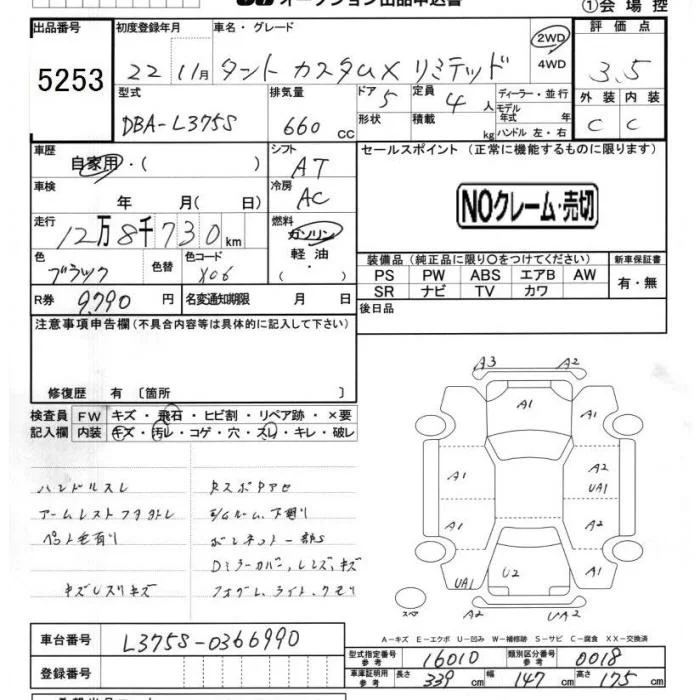 オークション出品申込書
①会場控
出品番号 5253
初度登録年月 22 11月
車名・グレード タント カスタムX リミテッド
2WD
4WD
評価点 3.5
外装 内装
C C
型式 DBA-L375S
排気量 660 cc
ドア 5
形状
定員 4人
積載 kg
ディーラー・並行
モデル年式 年
ハンドル 左・右
車歴 自家用・( )
シフト AT
車検 年 月( 日)
冷房 AC
走行 12万8千730km
燃料 ガソリン
軽油
・
( )
色 ブラック
色替
色コード X06
R券 9,790 円
名変通知期限 月 日
セールスポイント (正常に機能するものに限ります)
NOクレーム・売切
装備品 (純正品に限り○をつけてください)
新車保証書
PS PW ABS エアB AW
SR ナビ TV カワ
有・無
後日品
注意事項申告欄 (不具合内容等は具体的に記入して下さい)
修復歴 有 〔箇所 〕
検査員 FW キズ・飛石・ヒビ割・リペア跡・×要
記入欄 内装 キズ・汚レ・コゲ・穴・スレ・キレ・破レ
ハンドルスレ
アームレスト
ペット毛有り
キズUスリキズ
ルーム、下廻り
ボンネット
Dミラーカバー、レンズ、キズ
フォグレ、ライト、クモリ
A3 A2
A1 A1
A1 A2
UA1
A1 A2
UA1 U2
スペア A1 UA2
A-キズ E-エクボ U-凹み W-補修跡 S-サビ C-腐食 XX-交換済
車台番号 L375S-0366990
登録番号
型式指定番号 参考 16010
類別区分番号 参考 0018
車庫証明用 参考 長さ 339 cm 幅 147 cm 高さ 175 cm